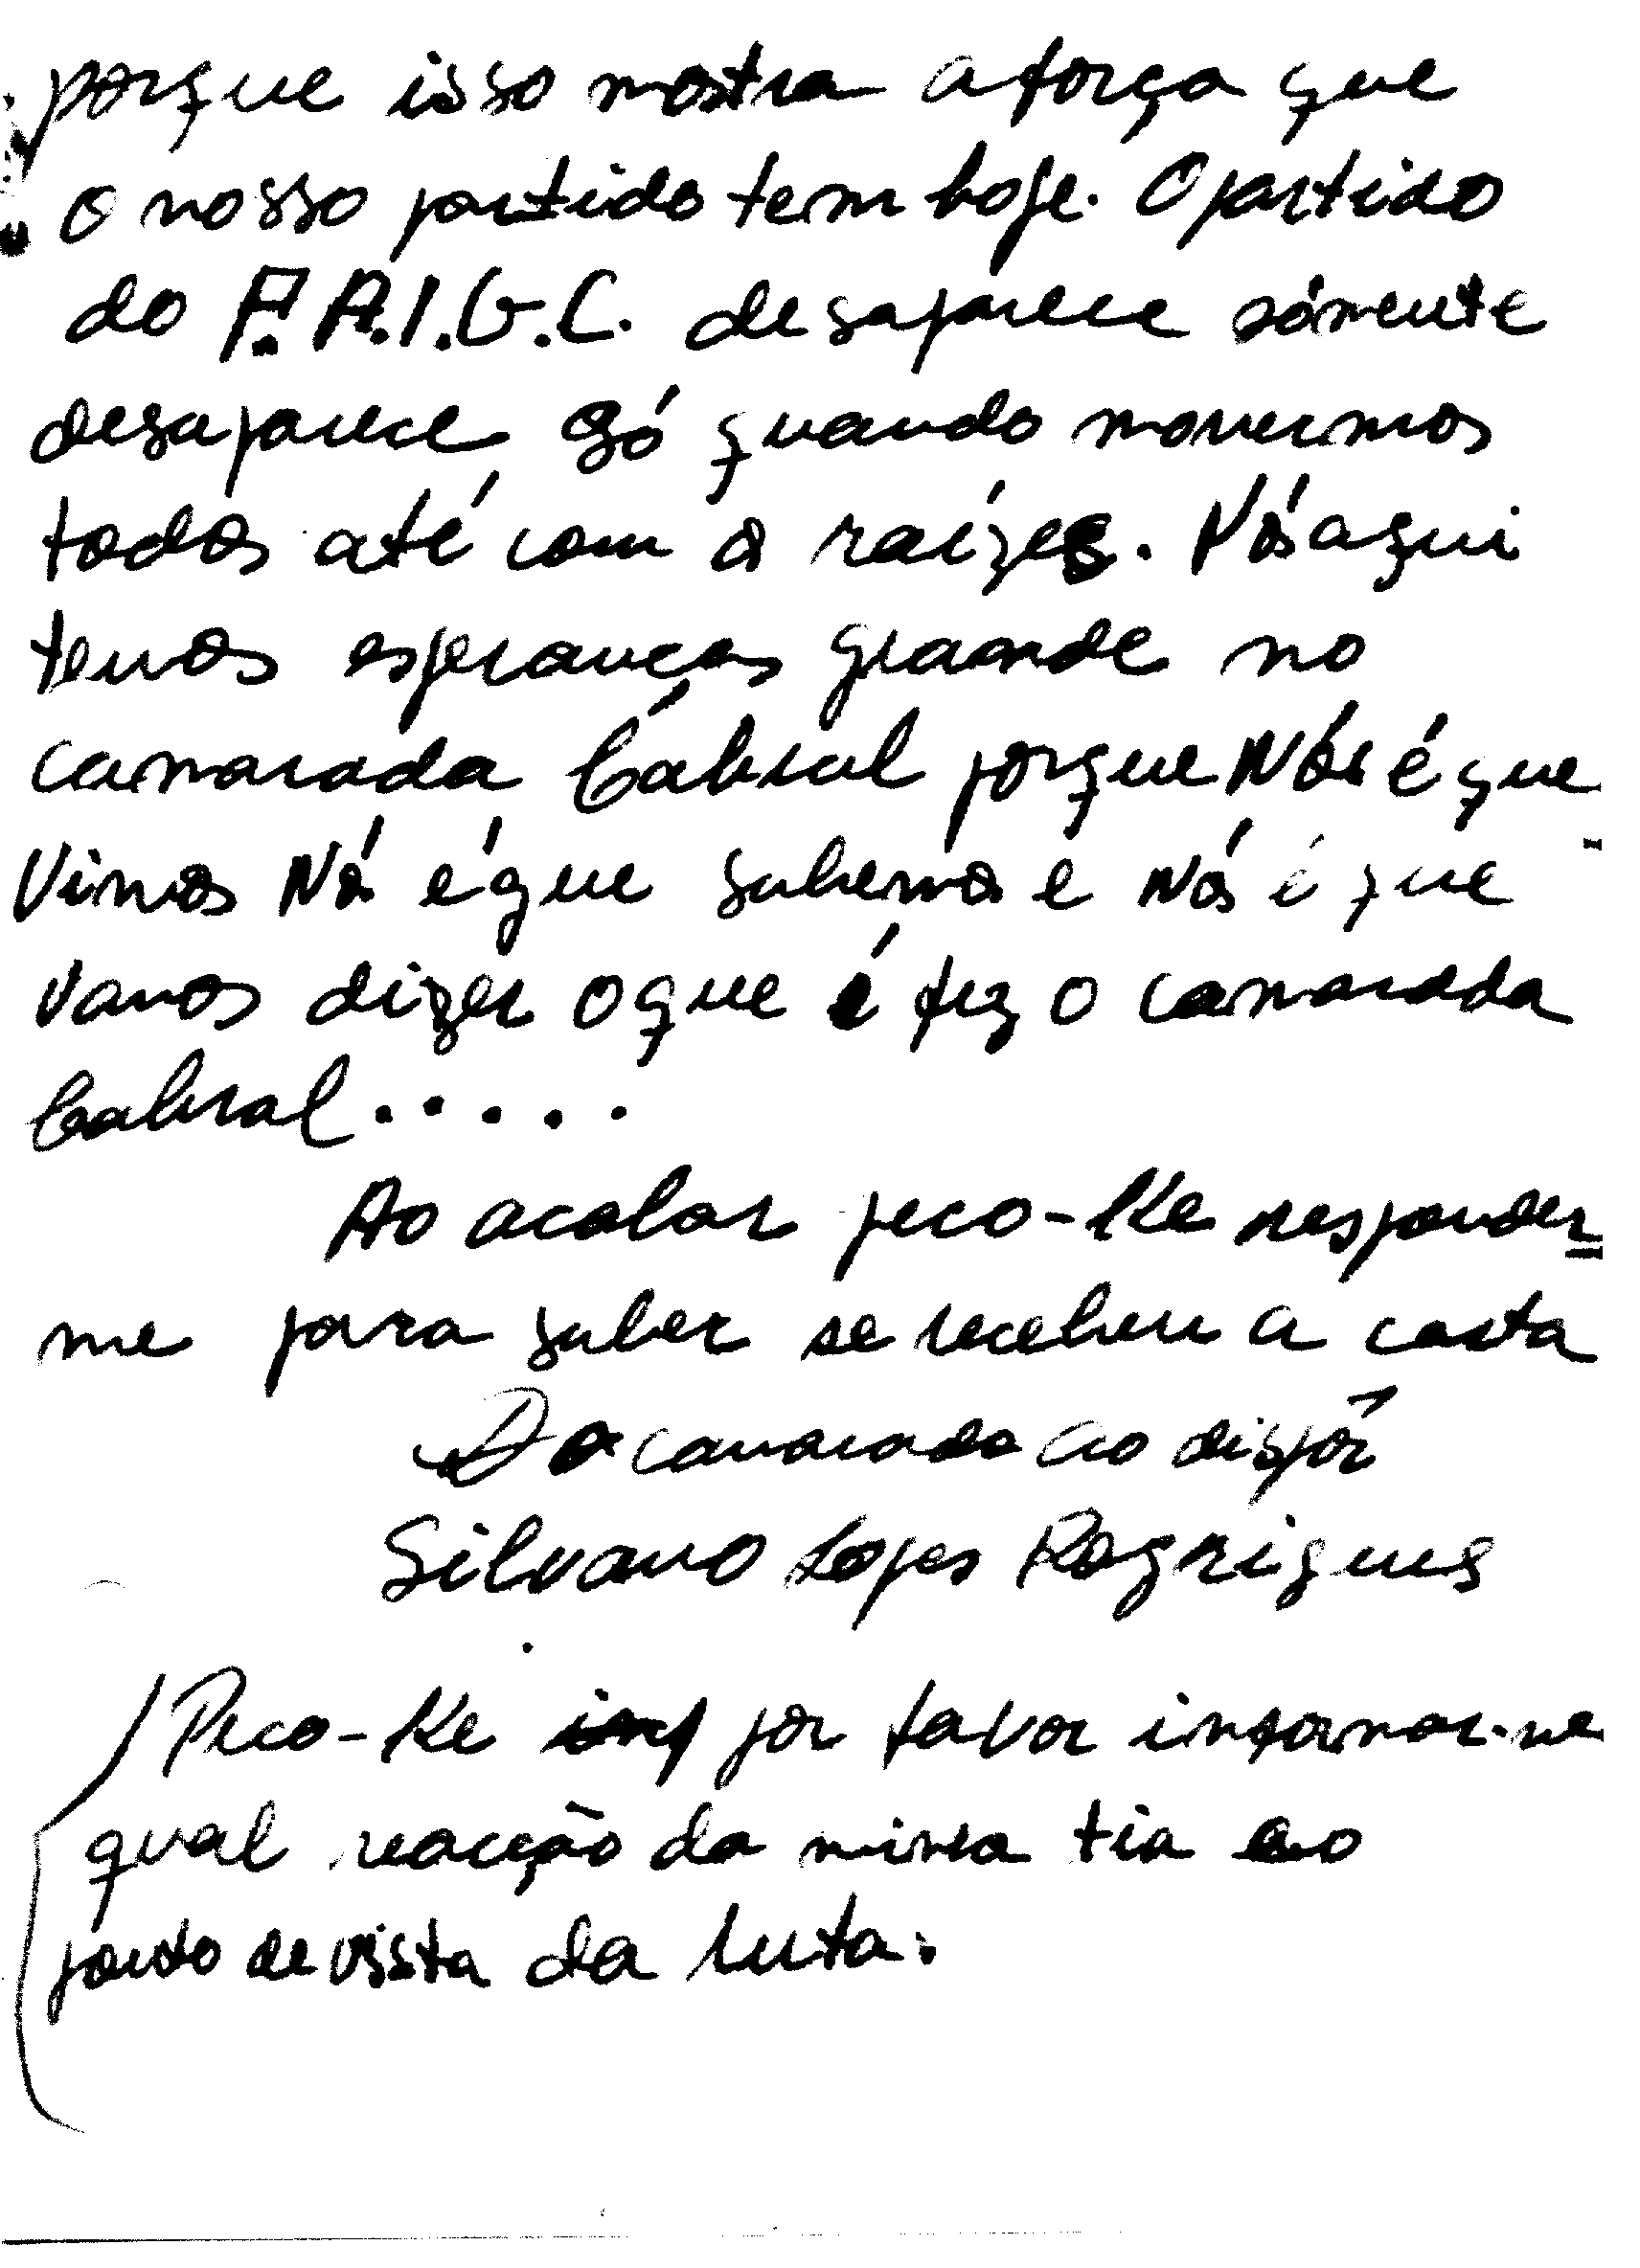 porque isso mostra a força que
o nosso partido tem hoje. O partido
do P.A.I.G.C. desaparece sómente
desaparece só quando morrermos
todos até com os raízes. Nós aqui
temos esperanças grande no
camarada Cábral porque Nós é que
Vimos Nós é que sabemos e Nós é que
vamos dizer o que é fez o camarada
Cabral.....
Ao acabar peco-Ke responder=
me para saber se recebeu a carta
Do camarada ao dispôr
Silvano Lopes Rogrigues
Peco-Ke inf por favor informar-me
qual reacção da minha tia ao
ponto de vista da luta.